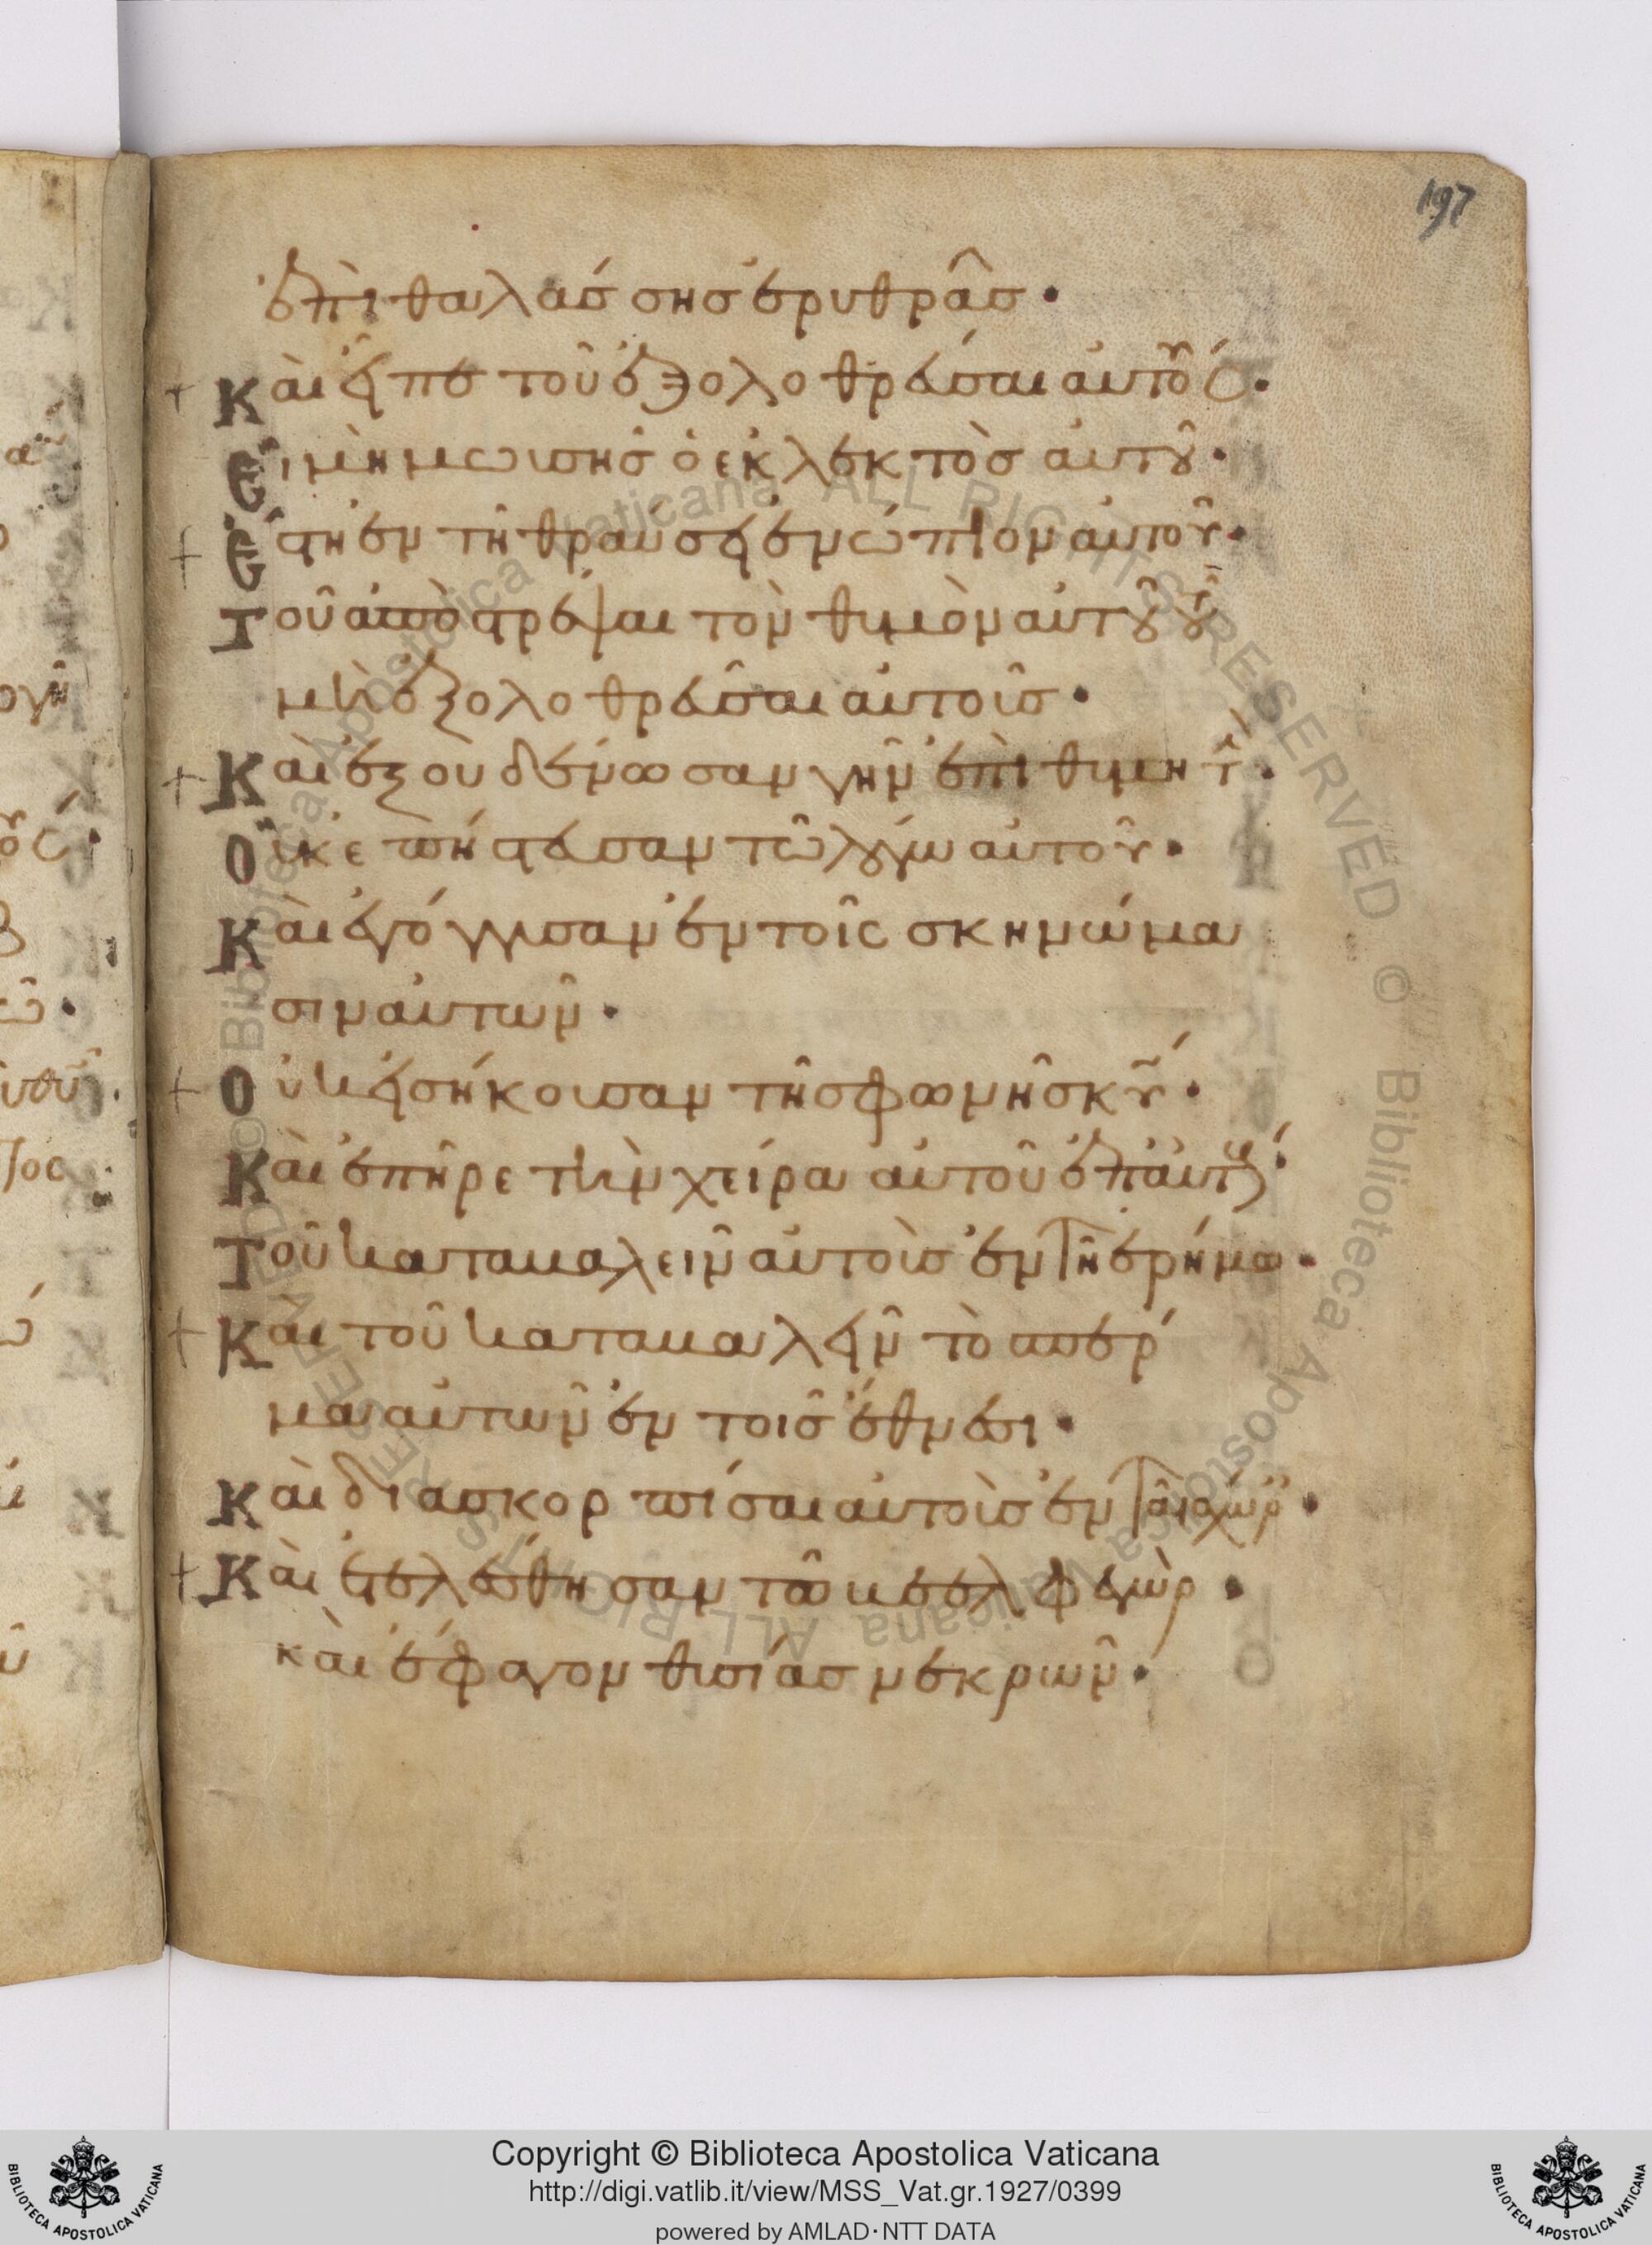 197
ἐπι θαλάσσης ἐρυθρᾶς·
+ Και εἶπε τοῦ ἐξολοθρεύσαι αυτούς·
Εἰ μὴ μωυσῆς ὁ ἐκλεκτὸς αυτοῦ·
+ Ἔστη ἐν τῆ θραύσει ἐνώπιον αυτοῦ·
Τοῦ ἀποστρέψαι τὸν θυμὸν αυτοῦ τοῦ
μὴ ἐξολοθρεῦσαι αυτους·
+ Και ἐξουδένωσαν γῆν ἐπιθυμητὴν·
Οὐκ ἐπίστευσαν τῶ λόγω αυτοῦ·
Και ἐγόγγυσαν ἐν τοῖς σκηνώμα
σιν αυτων·
+ Οὐκ εἰσήκουσαν τῆς φωνῆς κυ·
Και ἐπῆρε τὴν χείρα αυτοῦ ἐπ αυτους·
Τοῦ καταβαλεῖν αυτους ἐν τῆ ἐρήμω·
+ Και τοῦ καταβαλεῖν τὸ σπέρ
μα αυτῶν ἐν τοῖς ἔθνεσι·
Και διασκορπίσαι αυτους ἐν ταῖς χώρ·
+ Και ἐτελέσθησαν τῶ βεελφεγὼρ·
και ἔφαγον θυσίας νεκρων·
Copyright © Biblioteca Apostolica Vaticana
http://digi.vatlib.it/view/MSS_Vat.gr.1927/0399
powered by AMLAD·NTT DATA
BIBLIOTECA APOSTOLICA VATICANA
BIBLIOTECA APOSTOLICA VATICANA